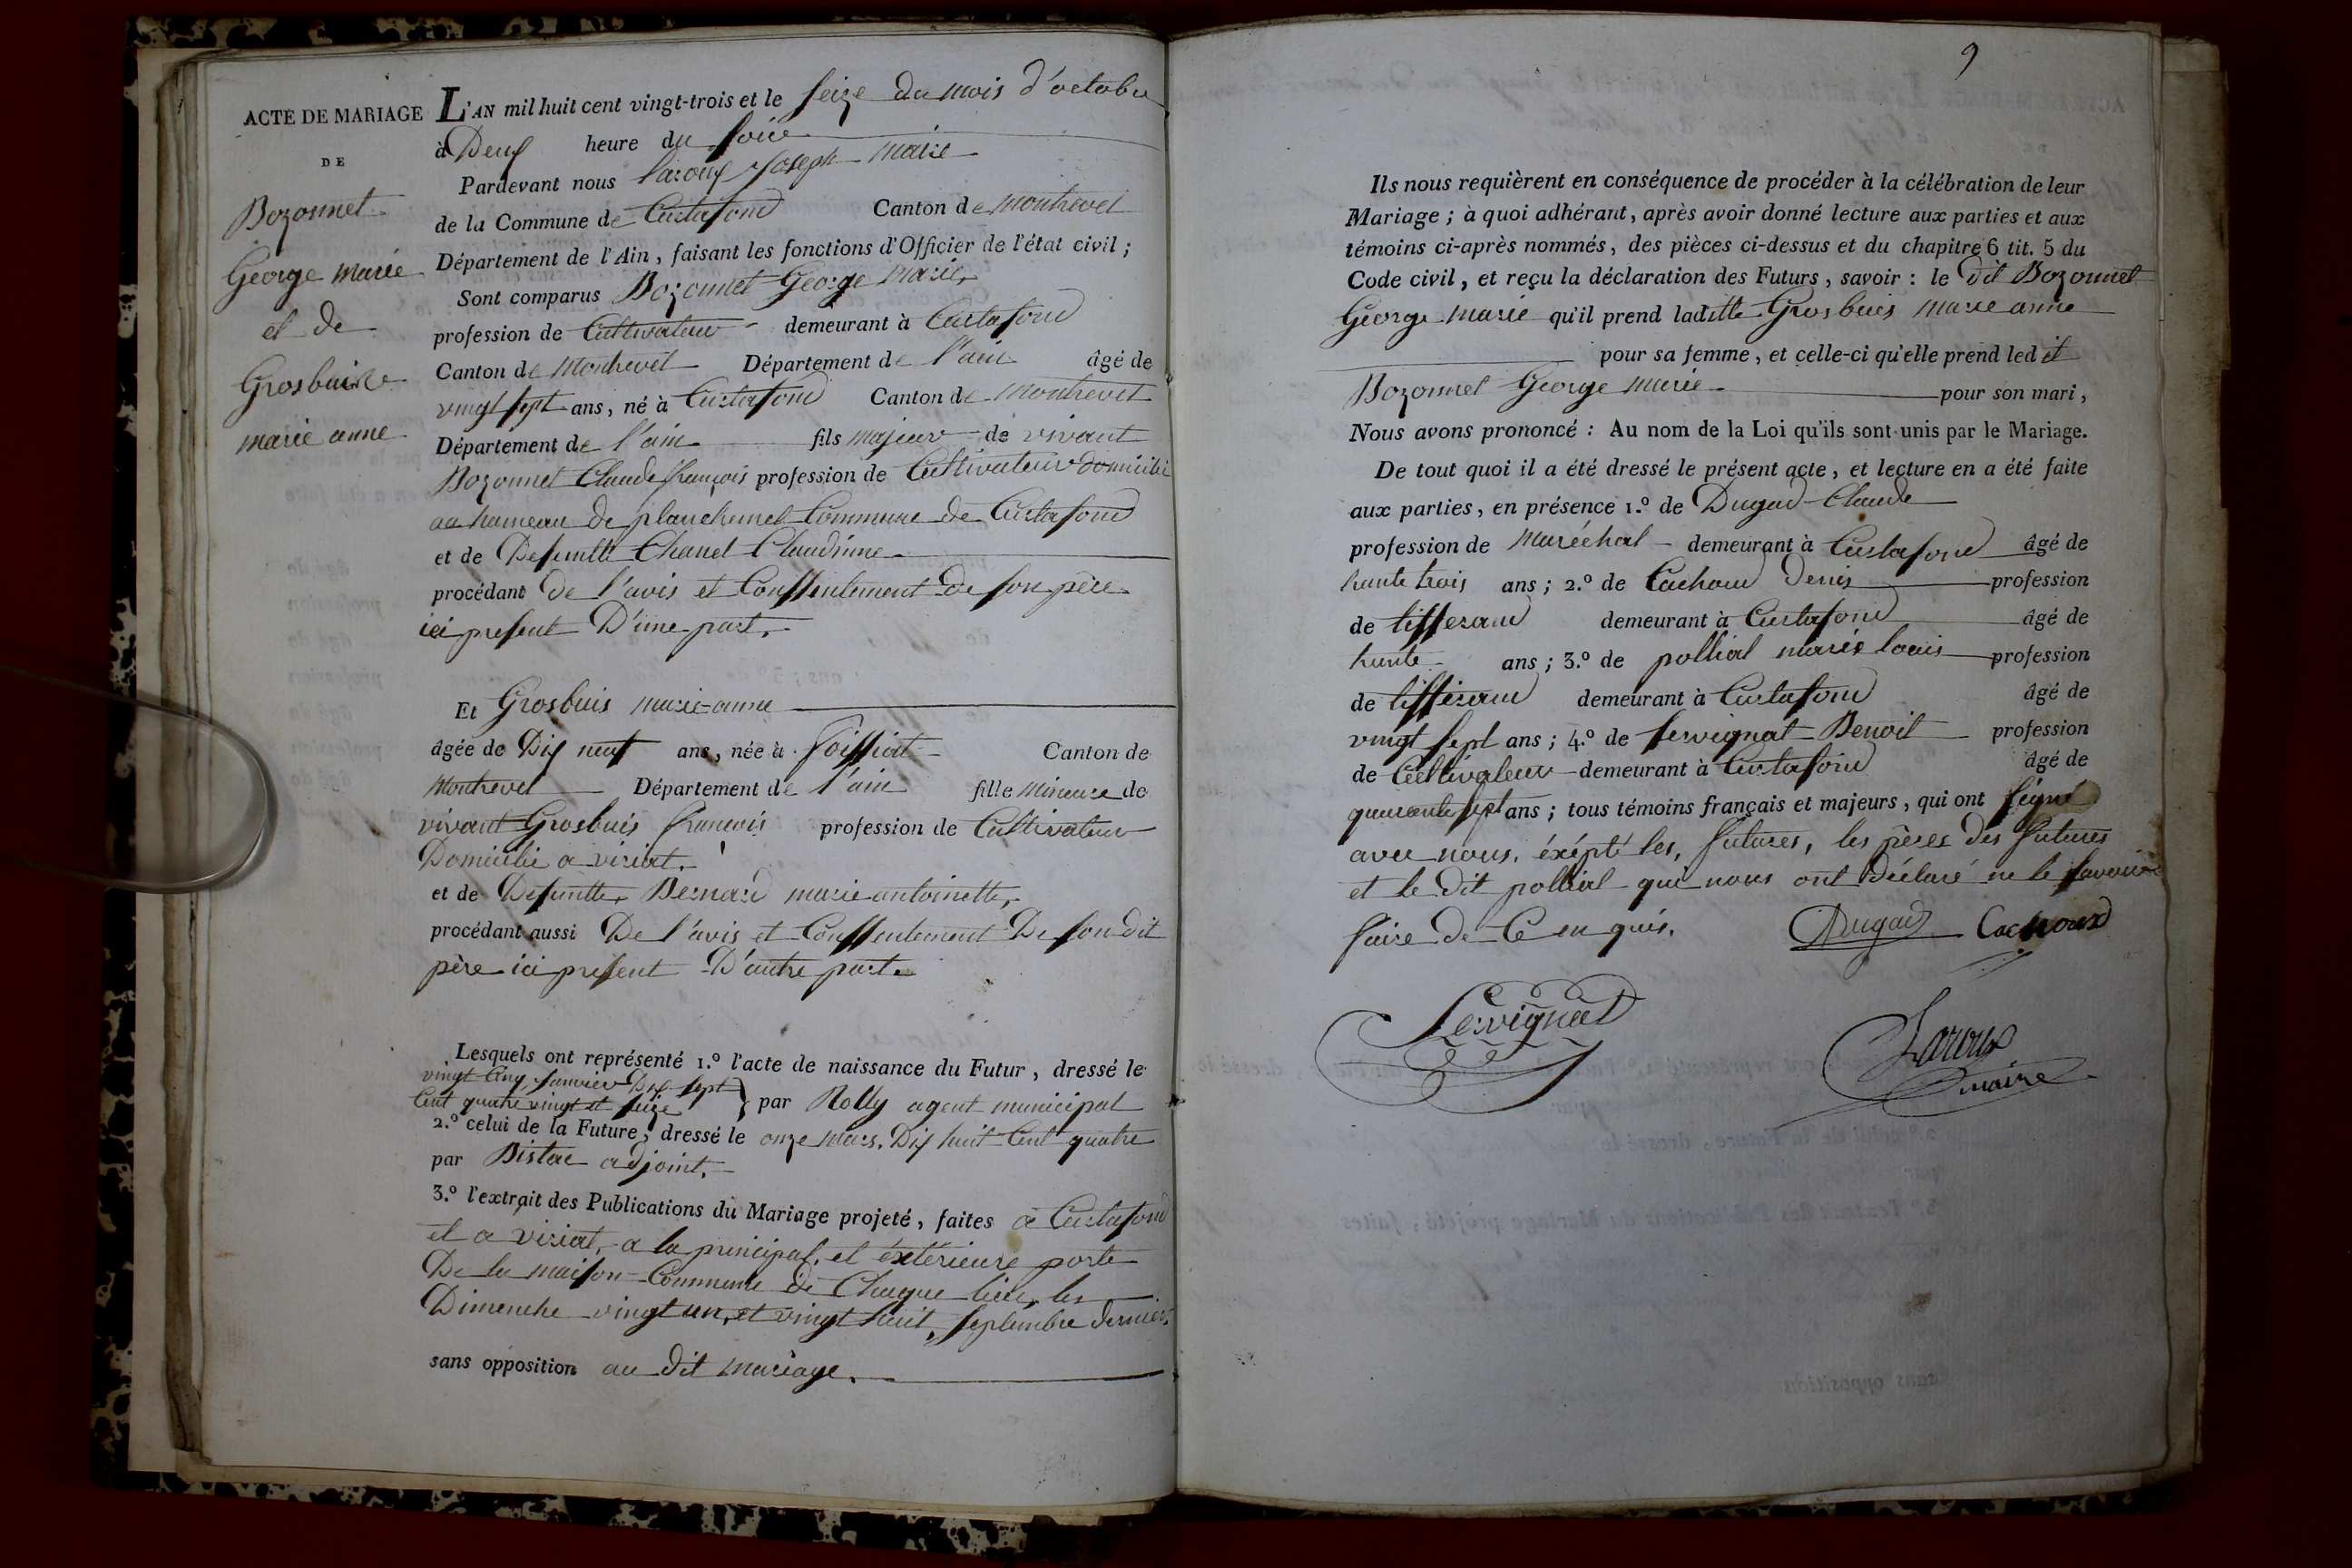 ACTE DE MARIAGE
DE
Bozonnet
George marie
et de
Grosbuis
marie anne
L'AN mil huit cent vingt-trois et le seize du mois d'octobre
à Deux heure du soir
Pardevant nous Laroux Joseph Marie
de la Commune de Curtafond Canton de Montrevel
Département de l'Ain, faisant les fonctions d'Officier de l'état civil;
Sont comparus Bozonnet George Marie,
profession de Cultivateur demeurant à Curtafond
Canton de Montrevel Département de l'ain âgé de
vingt sept ans, né à Curtafond Canton de Montrevel
Département de l'ain fils majeur de vivant
Bozonnet Claude françois profession de Cultivateur domicilié
au hameau de planchemel Commune de Curtafond
et de Defuntte Chanel Claudinne
procédant de l'avis et Conssentement de son père
ici present D'une part.
Et Grosbuis marie-anne
âgée de Dix neuf ans, née à foissiat Canton de
Montrevel Département de l'ain fille mineure de
vivant Grosbuis francois profession de Cultivateur
Domicilié a viriat.
et de Defuntte, Bernard marie antoinette,
procédant aussi De l'avis et Conssentement De son dit
père ici present D'autre part.
Lesquels ont représenté 1.° l'acte de naissance du Futur, dressé le
vingt Cinq Janvier Dix sept
Cent quatre vingt et seize } par Rolly agent municipal
2.° celui de la Future, dressé le onze Mars. Dix huit Cent quatre
par Bistac adjoint.
3.° l'extrait des Publications du Mariage projeté, faites à Curtafond
et a viriat, a la principal. et éxtérieure porte
De la maison Commune de Chaque lieu, les
Dimenche vingt un, et vingt huit, septembre dernier.
sans opposition au dit Mariage.
9
Ils nous requièrent en conséquence de procéder à la célébration de leur
Mariage; à quoi adhérant, après avoir donné lecture aux parties et aux
témoins ci-après nommés, des pièces ci-dessus et du chapitre 6 tit. 5 du
Code civil, et reçu la déclaration des Futurs, savoir: le dit Bozonnet
George marie qu'il prend laditte Grosbuis marie anne
pour sa femme, et celle-ci qu'elle prend ledit
Bozonnet George marie pour son mari,
Nous avons prononcé: Au nom de la Loi qu'ils sont unis par le Mariage.
De tout quoi il a été dressé le présent acte, et lecture en a été faite
aux parties, en présence 1.° de Dugad Claude
profession de Maréchal demeurant à Curtafond âgé de
trente trois ans; 2.° de Cachoud Denis profession
de tisserand demeurant à Curtafond âgé de
trente ans; 3.° de pollial marie louis profession
de tisserand demeurant à Curtafond âgé de
vingt sept ans; 4.° de servignat Benoit profession
de Cultivateur demeurant à Curtafond âgé de
quarante sept ans; tous témoins français et majeurs, qui ont signé
avec nous. éxépté les, futures, les pères des futures
et le dit pollial que nous ont Déclaré ne le savoir
faire de Ce enquis.
Dugad Cachoux
Servignat
Laroux
maire